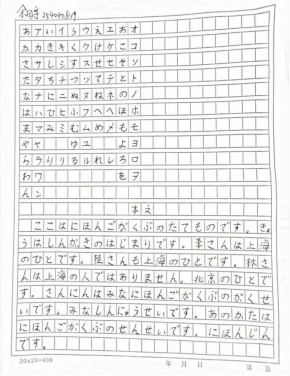 あアいイうウえエおオ
かカきキくクけケこコ
さサしシすスせセそソ
たタちチつツてテとト
なナにニぬヌねネのノ
はハひヒふフへヘほホ
まマみミむムめメもモ
やヤゆユよヨ
らラりリるルれレろロ
わワをヲ
んン
本文
ここはにほんごがくぶのたてものです。きょ
うはしんがっきのはじまりです。李さんは上海
のひとです。陸さんも上海のひとです。林さ
んは上海の人ではありません。北京のひとで
す。さんにんはみなにほんごがくぶのがくせ
いです。みなしんにゅうせいです。あのかたは
にほんごがくぶのせんせいです。にほんじん
です。
20×20=400
年 月 日
第 頁